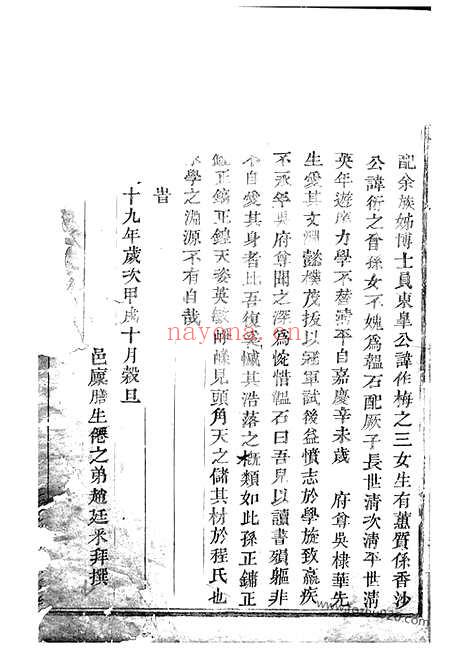 配余族姊博士員東皐公諱作梅之三女生有蕙質係香沙
公諱衍之曾孫女不媿爲韞石配厥子長世清次清平世清
英年遊庠力學不替清平自嘉慶辛未歲 府尊吳棣華先
生愛其文淵懿樸茂拔以冠軍試後益憤志於學旋致羸疾
不永年吳府尊聞之深爲惋惜韞石曰吾兒以讀書殞軀非
不自愛其身者比吾復奚憾其浩落之概類如此孫正鏞正
正鏞正鍠天姿英敏 見頭角天之儲其材於程氏也
學之淵源不有自哉
旹
十九年歲次甲戌十月穀旦
邑廩膳生僊之弟趙廷釆拜撰
nayona.cn